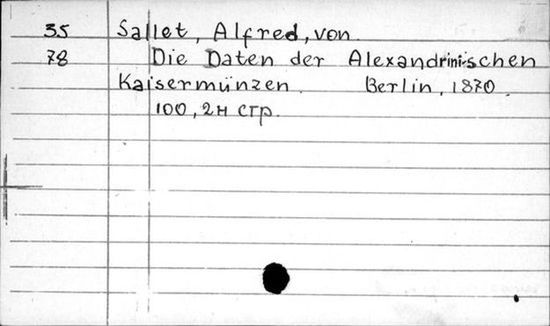 35 Sallet, Alfred, von
78 Die Daten der Alexandrinischen
Kaisermünzen. Berlin, 1870.
100, 2н стр.